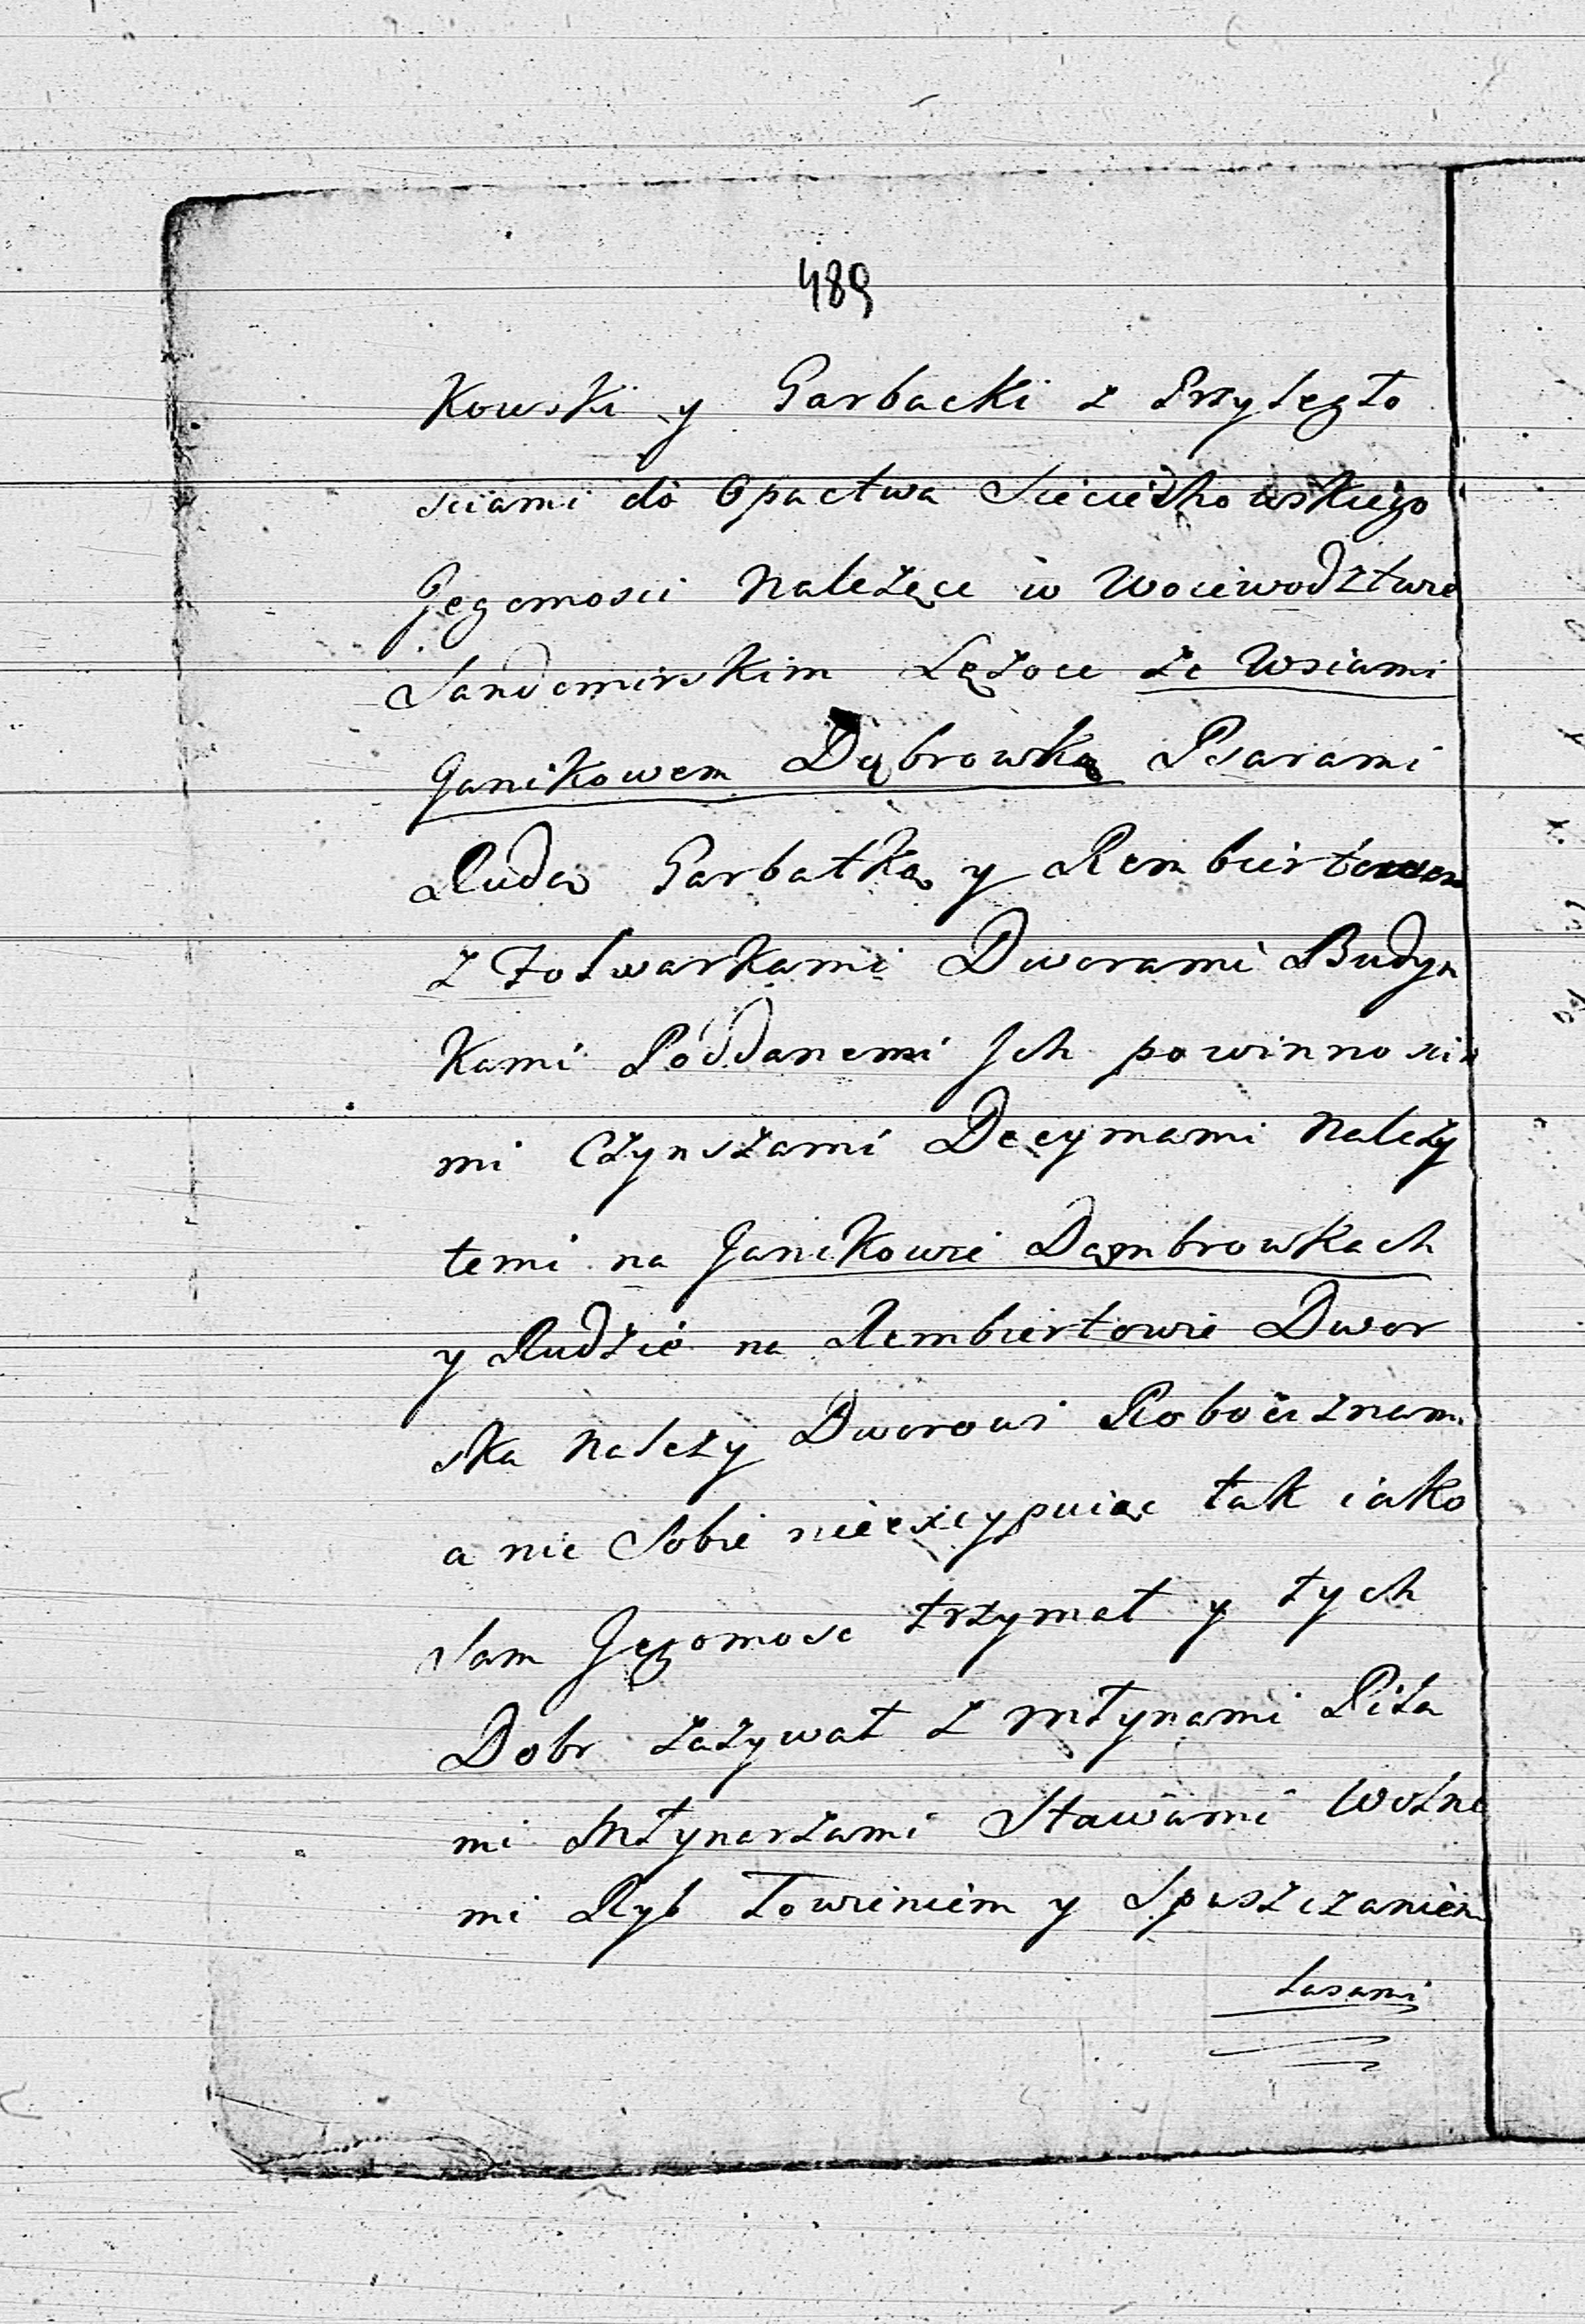 489
Kowski y Garbacki z Przyległo
sciami do Opactwa Sieciechowskiego
Jegomosci Należące w Woiewodztwe
Sandomirskim Lężące ze Wsiami
Janikowem Dąbrowką Psarami
Rudą Garbatką y Rembiertowem
z Folwarkami Dworami Budyn
Kami Póddanemi Jch powinnoscia
mi Czynszami Decymami Należy
temi na Janikowie Dąmbrowkach
y Rudzie na Rembiertowie Dwor
ska Należy Dworowi Robociznami
a nic Sobie nieexcypuiąc tak iako
Sam Jegomosc trzymał y tych
Dobr zażywał z Młynami Piła
mi Młynarzami Stawami Wolne
mi Ryb Łowieniem y Spuszczaniem
Lasami